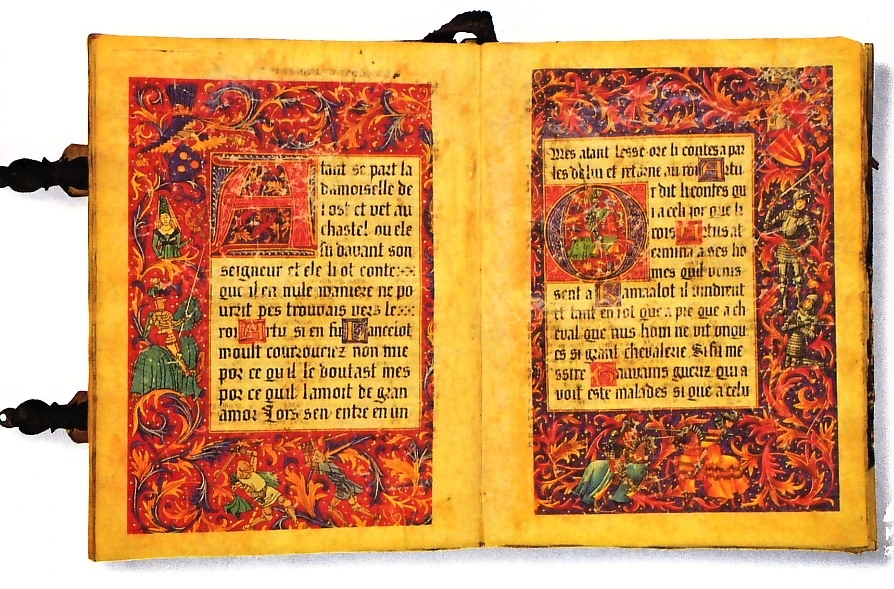 Atant se part la
damoiselle de
l ost et vet au
chastel ou ele
fu davant son
seigneur et ele li ot conte
que il en nule maniere ne po
urrit pes trouvais vers le
roi Artu si en fu Lanceiot
moult courouciez non mie
por ce qu il le doutast mes
por ce quil lamoit de gran
amor Lors sen entre en un
Mes atant lesse ore li contes a par
les de lui et retorne au roi Artu
Or dit li contes qu
i a celi jor que li
rois Artus at
ermina a ses ho
mes quil venis
sent a Kamaalot il vindrent
et tant en i ot que a pie que a ch
eval que nus hom ne vit onqu
es si grant chevalerie Si fu me
ssire Gauvains gueriz qui a
voit este malades si que a celu